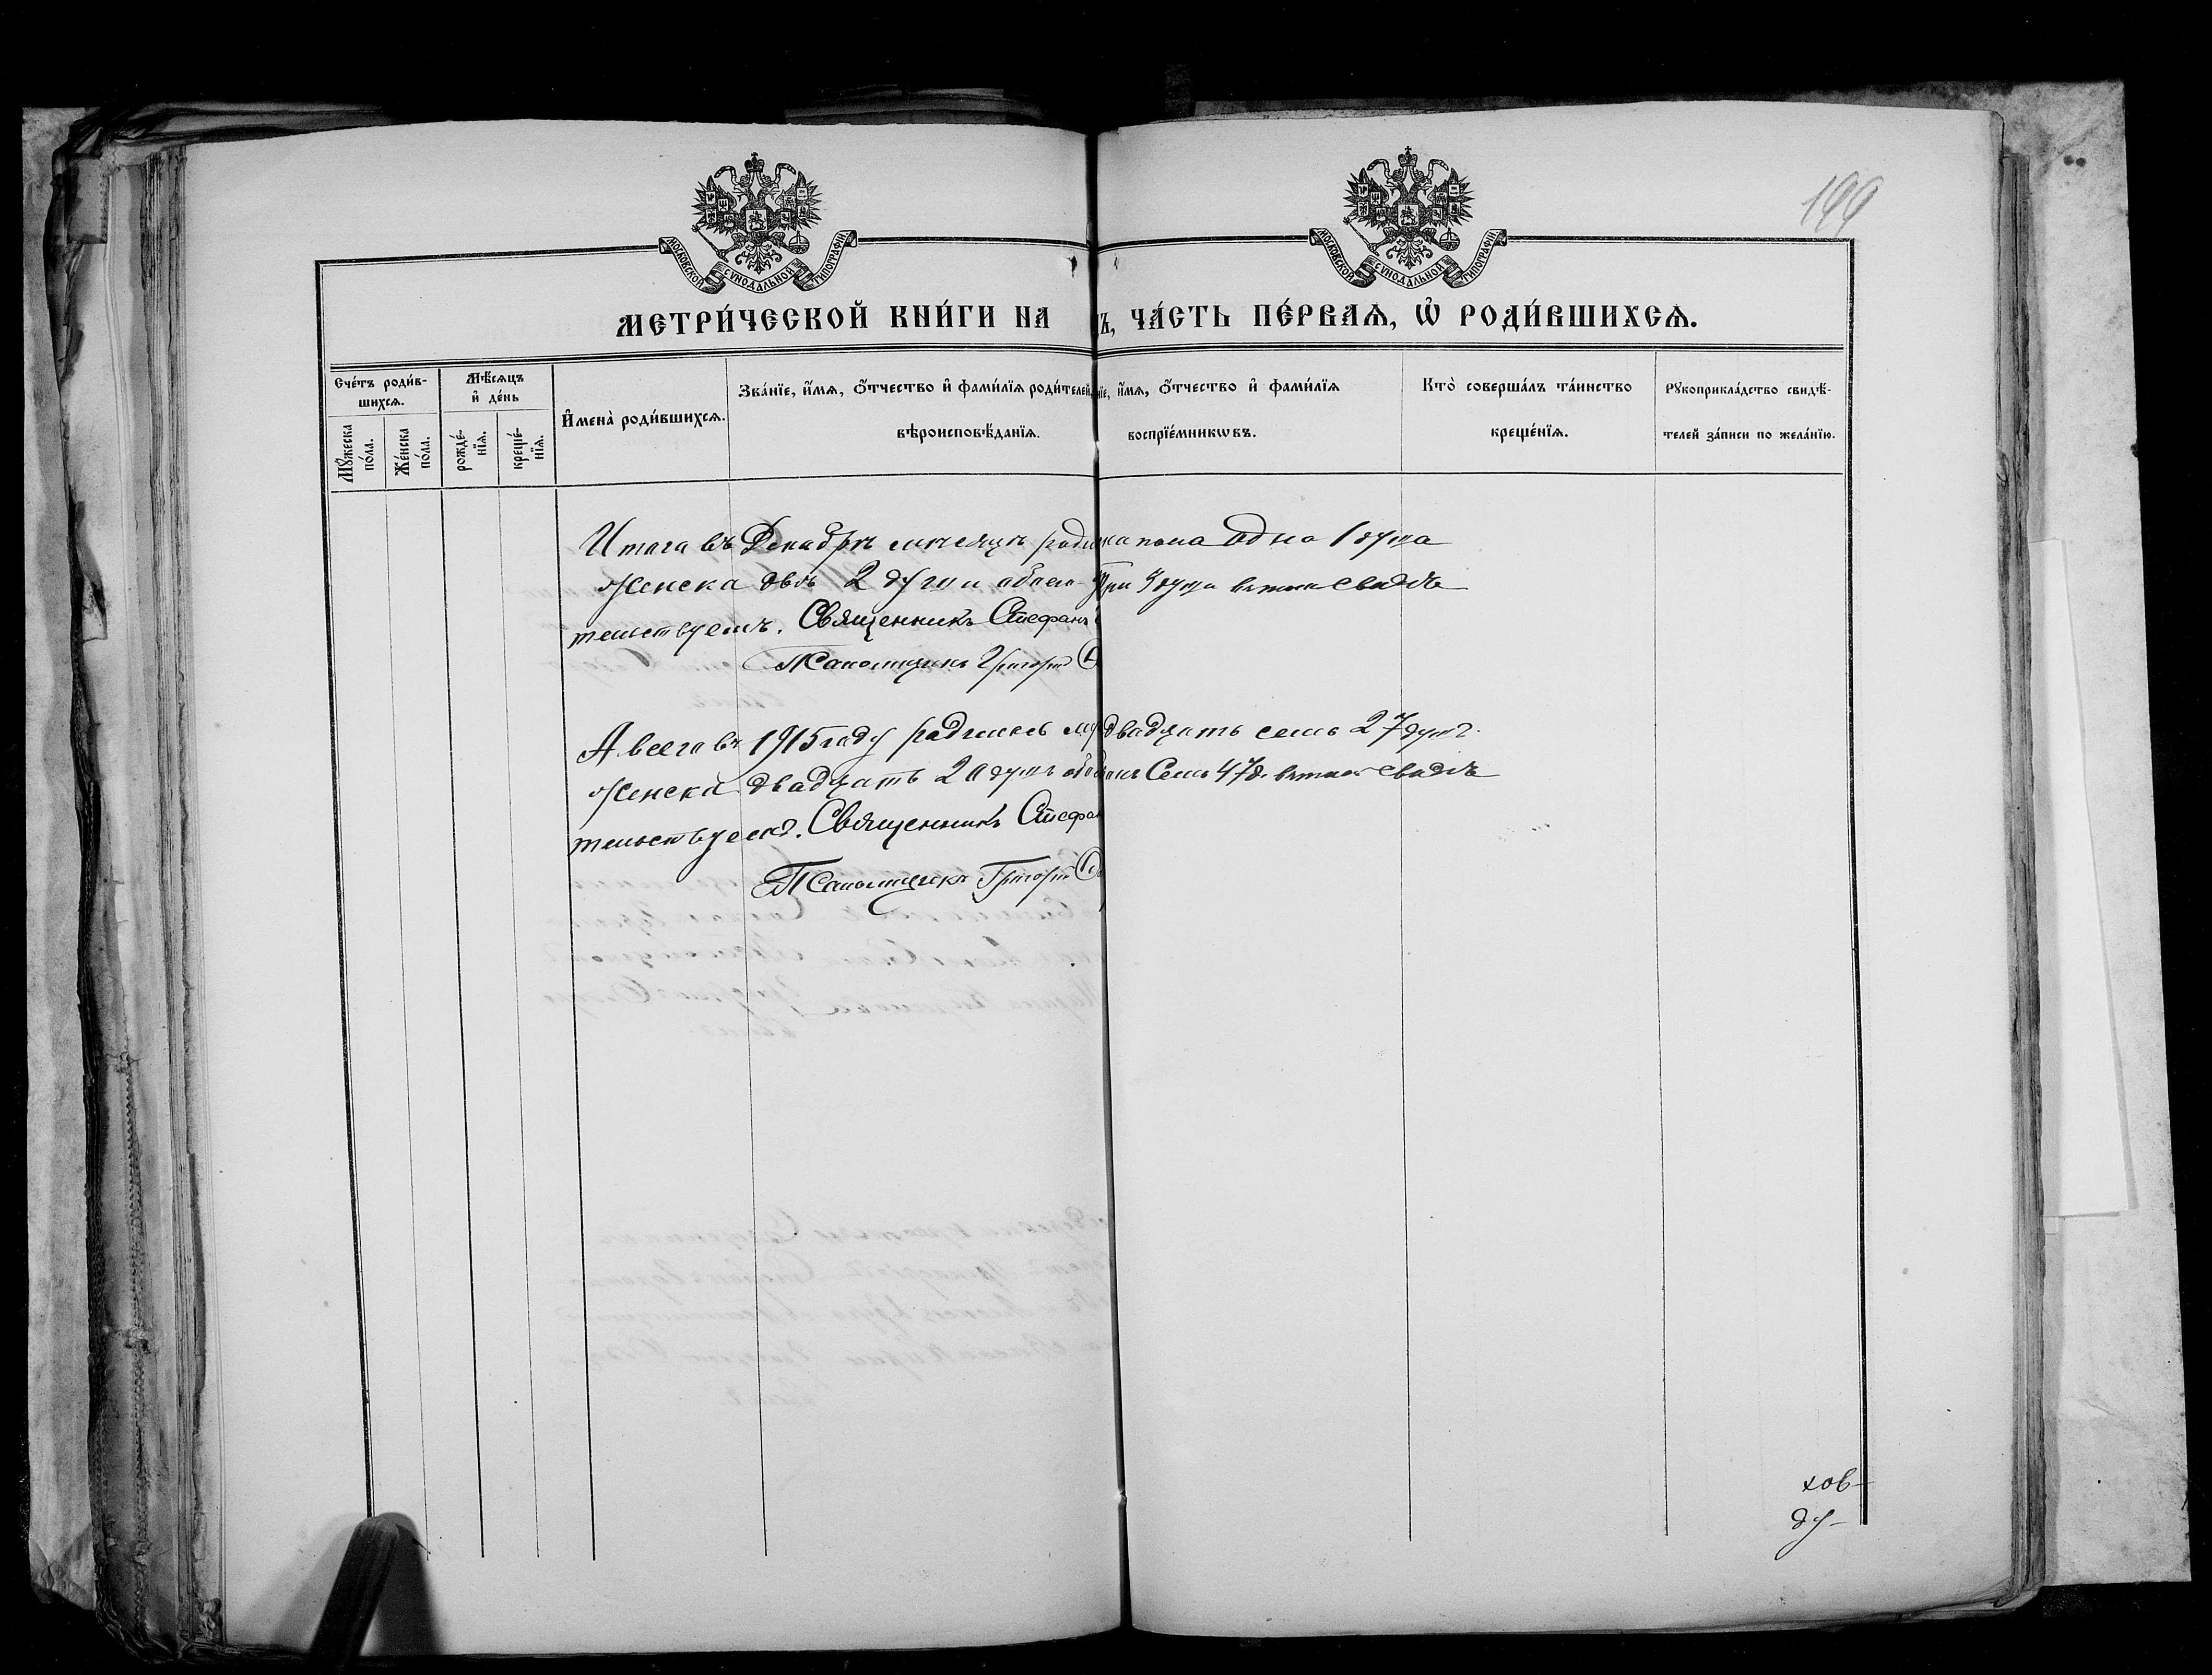 199
МОСКОВСКОЙ СУНОДАЛЬНОЙ ТИПОГРАФІИ
МОСКОВСКОЙ СУНОДАЛЬНОЙ ТИПОГРАФІИ
МЕТРИ́ЧЕСКОЙ КНИ́ГИ НА Ъ, ЧА́СТЬ ПЕ́РВАѦ, Ѽ РОДИ́ВШИХСѦ.
Сче́тъ роди́в-
шихсѧ.
Мꙋ́жеска по́ла.
Же́нска по́ла.
Мѣ́сѧцъ
и҆ де́нь
рожде́-нїѧ.
креще́-нїѧ.
И҆мена̀ роди́вшихсѧ.
Зва́нїе, и҆́мѧ, ѻ҆́тчество и҆ фами́лїѧ роди́телей,
вѣроисповѣ́данїѧ.
нїе, и҆́мѧ, ѻ҆́тчество и҆ фами́лїѧ
воспрїе́мникѡвъ.
Кто̀ соверша́лъ та́инство
креще́нїѧ.
Рꙋкоприкла́дство свидѣ́-
телей за́писи по жела́нїю.
Итого въ Декабрѣ мѣсяцѣ роди ка пола одна 1 душа
женска двѣ 2 души обоего Три 3 души въ чемъ свидѣ
тельствуемъ. Священникъ Стефанъ
Псаломщикъ Григорій
А всего въ 1915 году родилось му двадцать семь 27 душъ
женска двадцать 20 душъ обо Семь 47 д. въ чемъ свидѣ
тельствуемъ. Священникъ Стефан
Псаломщикъ Григорій
хов-
ду-